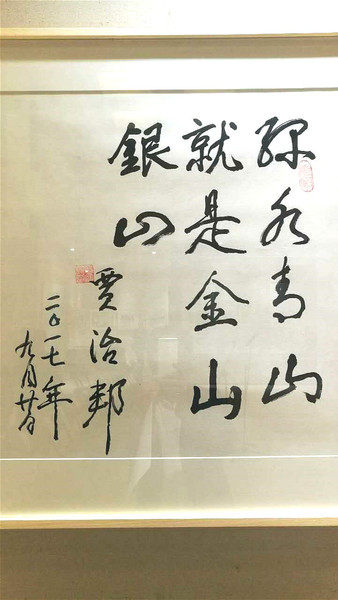 绿水青山
就是金山
銀山
贾治邦
二〇一七年
九月廿日